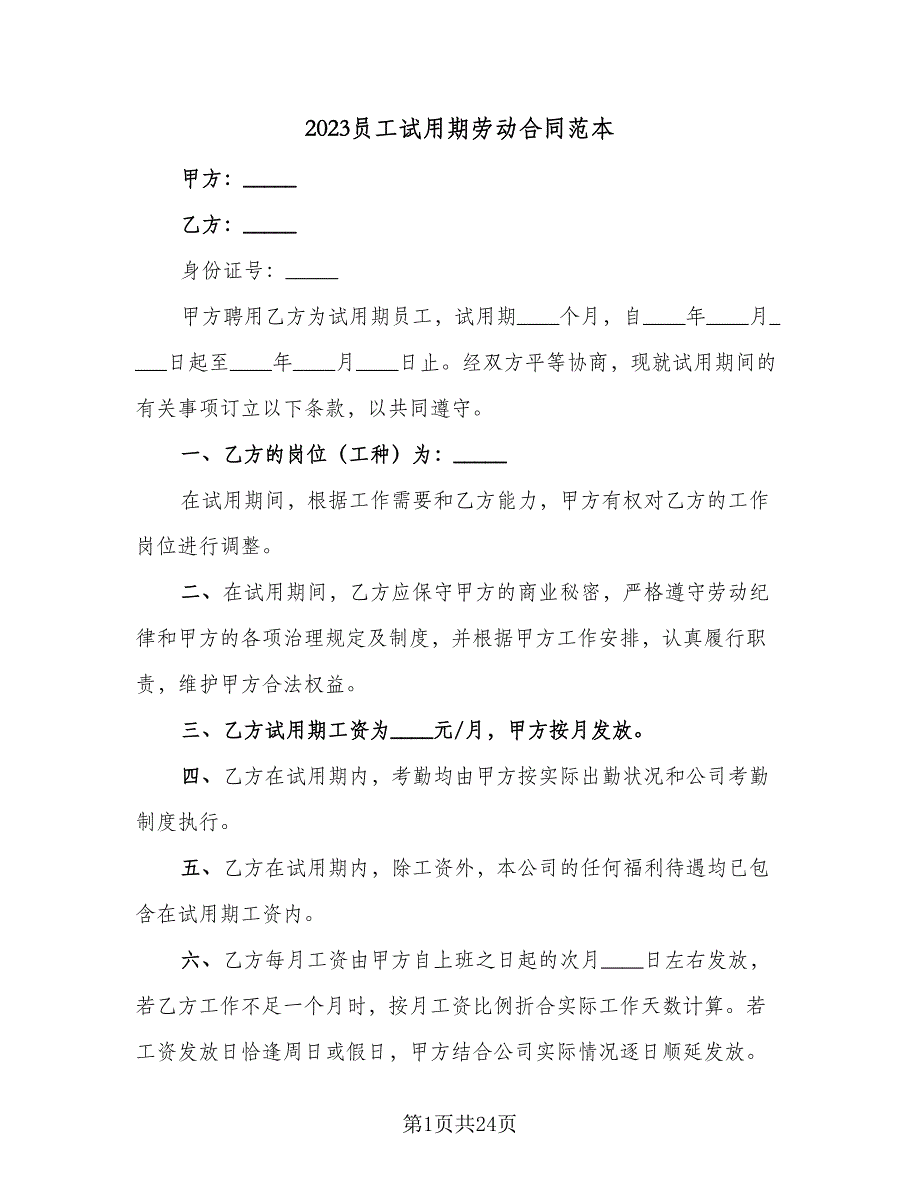 2023员工试用期劳动合同范本
甲方：_____
乙方：_____
身份证号：_____
甲方聘用乙方为试用期员工，试用期____个月，自____年____月_
___日起至____年____月____日止。经双方平等协商，现就试用期间的
有关事项订立以下条款，以共同遵守。
一、乙方的岗位（工种）为：_____
在试用期间，根据工作需要和乙方能力，甲方有权对乙方的工作
岗位进行调整。
二、在试用期间，乙方应保守甲方的商业秘密，严格遵守劳动纪
律和甲方的各项治理规定及制度，并根据甲方工作安排，认真履行职
责，维护甲方合法权益。
三、乙方试用期工资为____元/月，甲方按月发放。
四、乙方在试用期内，考勤均由甲方按实际出勤状况和公司考勤
制度执行。
五、乙方在试用期内，除工资外，本公司的任何福利待遇均已包
含在试用期工资内。
六、乙方每月工资由甲方自上班之日起的次月____日左右发放，
若乙方工作不足一个月时，按月工资比例折合实际工作天数计算。若
工资发放日恰逢周日或假日，甲方结合公司实际情况逐日顺延发放。
第1页共24页